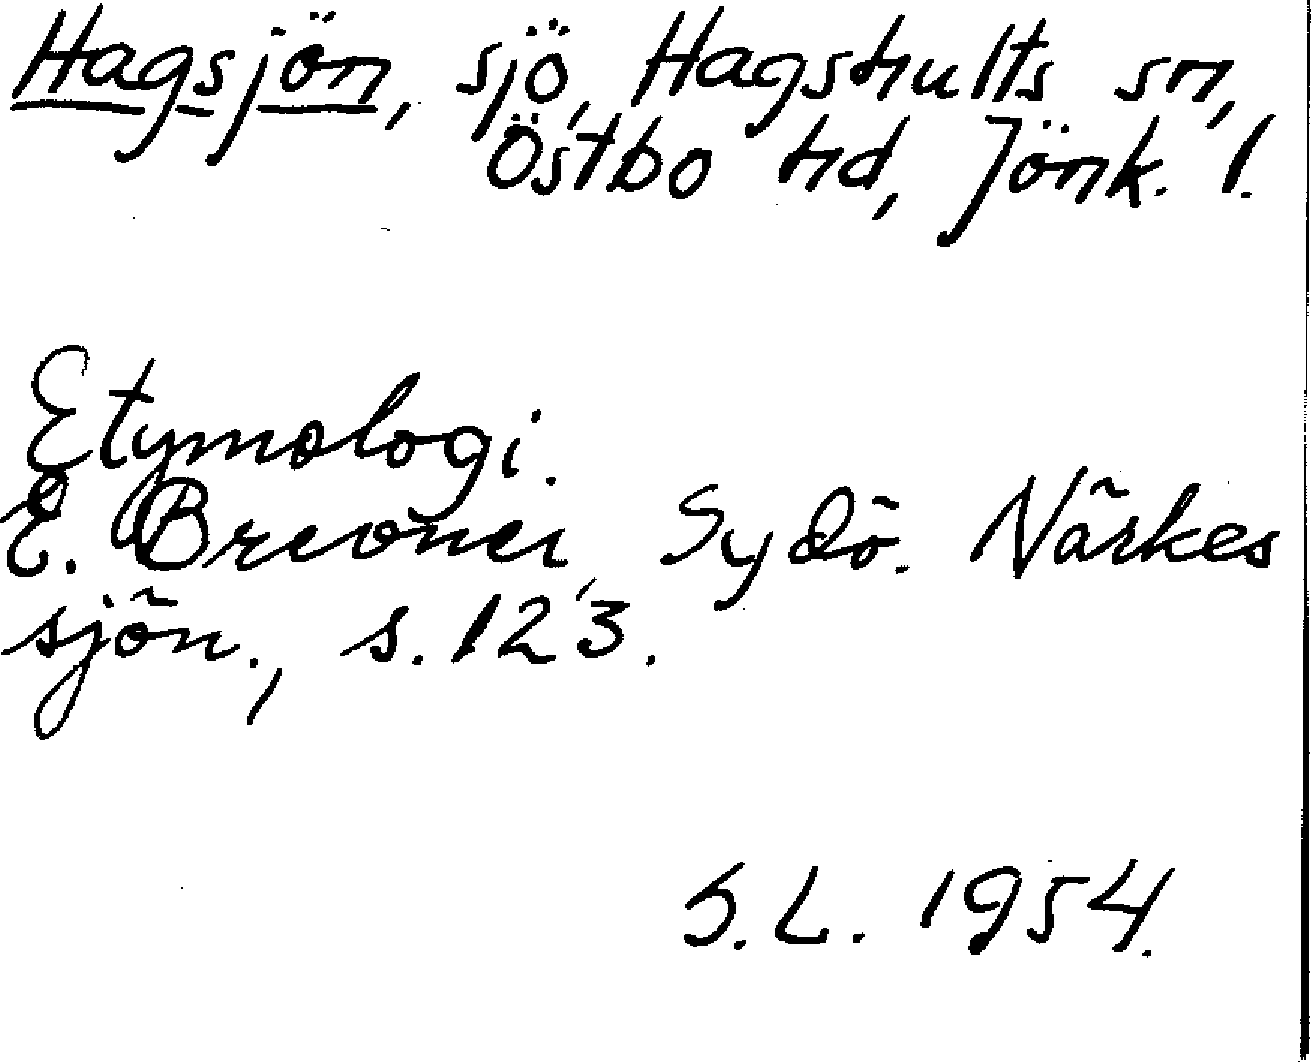 Hagsjön, sjö, Hagshults sn,
Östbo hd, Jönk. l.
Etymologi.
E. Brevner, Sydö. Närkes
sjön., s. 123.
S.L. 1954.